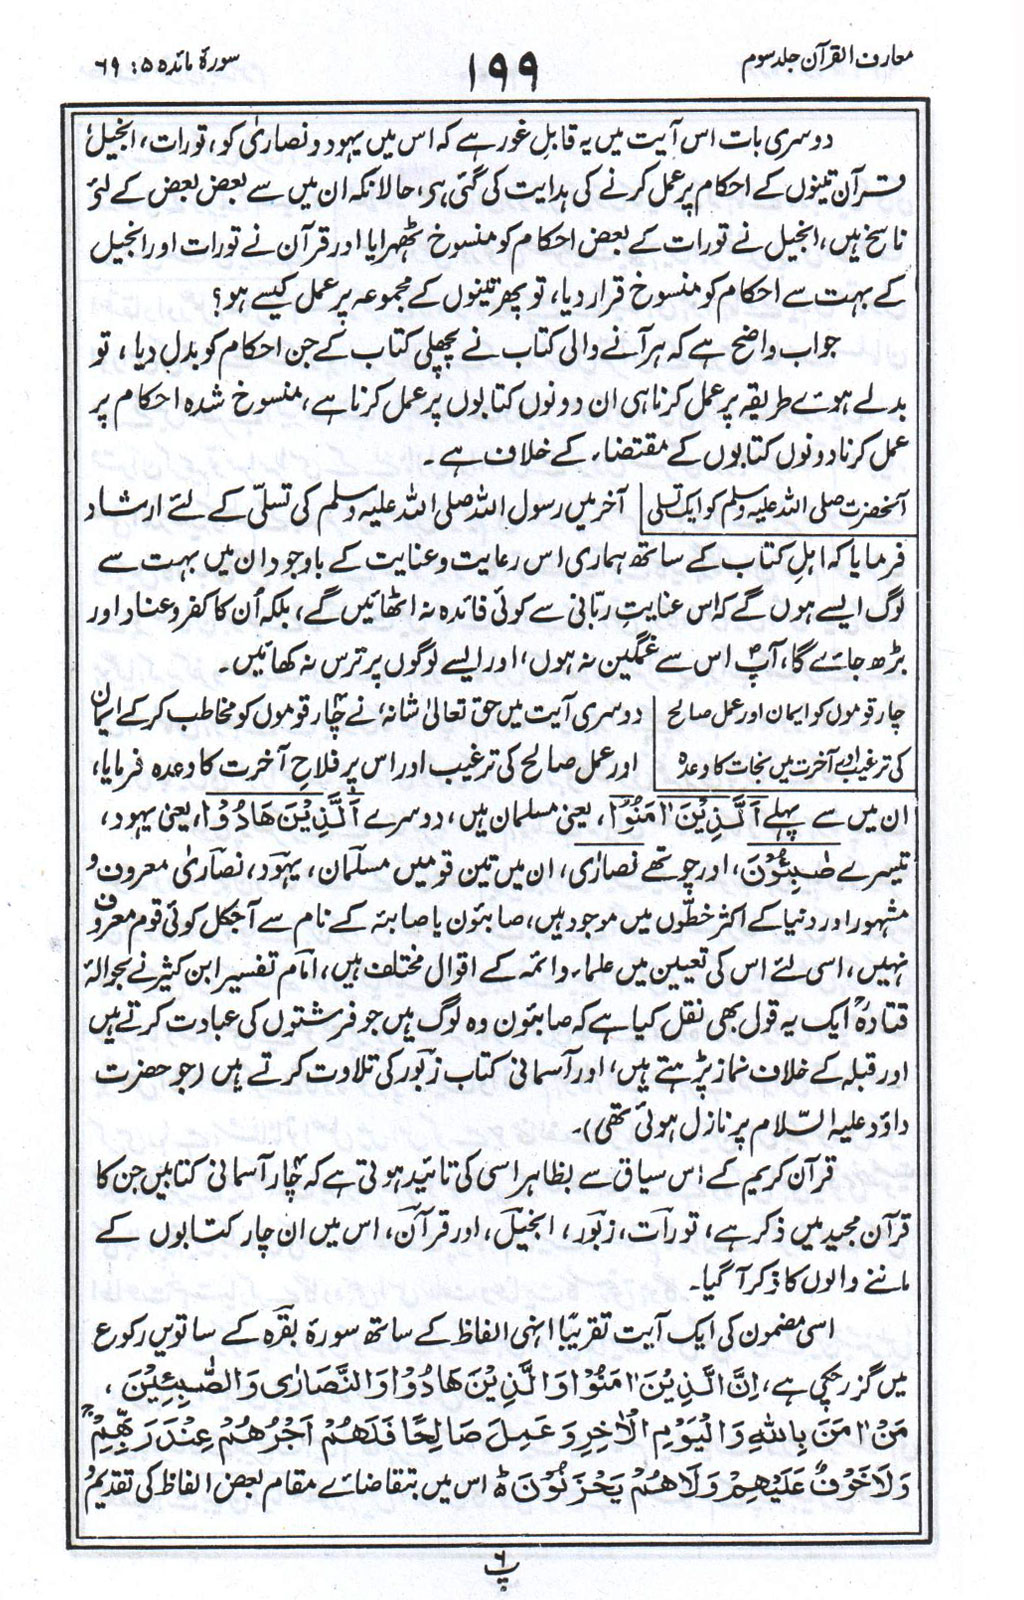 معارف القرآن جلد سوم
۱۹۹
سورۂ مائدہ ۵ : ۶۹
دوسری بات اس آیت میں یہ قابلِ غور ہے کہ اس میں یہود و نصاریٰ کو، تورات، انجیل،
قرآن تینوں کے احکام پر عمل کرنے کی ہدایت کی گئی ہی، حالانکہ ان میں سے بعض بعض کے لئے
ناسخ ہیں، انجیل نے تورات کے بعض احکام کو منسوخ ٹھہرایا اور قرآن نے تورات اور انجیل
کے بہت سے احکام کو منسوخ قرار دیا، تو پھر تینوں کے مجموعہ پر عمل کیسے ہو؟
جواب واضح ہے کہ ہر آنے والی کتاب نے پچھلی کتاب کے جن احکام کو بدل دیا، تو
بدلے ہوئے طریقہ پر عمل کرنا ہی ان دونوں کتابوں پر عمل کرنا ہے، منسوخ شدہ احکام پر
عمل کرنا دونوں کتابوں کے مقتضاء کے خلاف ہے۔
آنحضرت صلی اللہ علیہ وسلم کو ایک تسلی
آخر میں رسول اللہ صلی اللہ علیہ وسلم کی تسلّی کے لئے ارشاد
فرمایا کہ اہلِ کتاب کے ساتھ ہماری اس رعایت و عنایت کے باوجود ان میں بہت سے
لوگ ایسے ہوں گے کہ اس عنایتِ ربّانی سے کوئی فائدہ نہ اٹھائیں گے، بلکہ اُن کا کفر و عناد اور
بڑھ جائے گا، آپؐ اس سے غمگین نہ ہوں، اور ایسے لوگوں پر ترس نہ کھائیں۔
چار قوموں کو ایمان اور عمل صالح
کی ترغیب اور آخرت میں نجات کا وعدہ
دوسری آیت میں حق تعالیٰ شانہٗ نے چار قوموں کو مخاطب کر کے ایمان
اور عمل صالح کی ترغیب اور اس پر فلاحِ آخرت کا وعدہ فرمایا،
ان میں سے پہلے اَلَّذِیْنَ اٰمَنُوْا، یعنی مسلمان ہیں، دوسرے اَلَّذِیْنَ ھَادُوْا، یعنی یہود،
تیسرے صٰبِئُوْنَ، اور چوتھے نصاریٰ، ان میں تین قومیں مسلمان، یہود، نصاریٰ معروف و
مشہور اور دنیا کے اکثر خطّوں میں موجود ہیں، صابئون یا صابئہ کے نام سے آجکل کوئی قوم معروف
نہیں، اسی لئے اس کی تعیین میں علماء و ائمہ کے اقوال مختلف ہیں، امام تفسیر ابن کثیرؒ نے بحوالۂ
قتادہؒ ایک یہ قول بھی نقل کیا ہے کہ صابئون وہ لوگ ہیں جو فرشتوں کی عبادت کرتے ہیں
اور قبلہ کے خلاف نماز پڑھتے ہیں، اور آسمانی کتاب زبور کی تلاوت کرتے ہیں (جو حضرت
داؤد علیہ السّلام پر نازل ہوئی تھی)۔
قرآن کریم کے اس سیاق سے بظاہر اسی کی تائید ہوتی ہے کہ چار آسمانی کتابیں جن کا
قرآن مجید میں ذکر ہے، تورات، زبور، انجیل، اور قرآن، اس میں ان چار کتابوں کے
ماننے والوں کا ذکر آ گیا۔
اسی مضمون کی ایک آیت تقریبًا انہی الفاظ کے ساتھ سورۂ بقرہ کے ساتویں رکوع
میں گزر چکی ہے، اِنَّ الَّذِیْنَ اٰمَنُوْا وَالَّذِیْنَ ھَادُوْا وَالنَّصَارٰی وَالصّٰبِئِیْنَ،
مَنْ اٰمَنَ بِاللّٰہِ وَالْیَوْمِ الْاٰخِرِ وَعَمِلَ صَالِحًا فَلَھُمْ اَجْرُھُمْ عِنْدَ رَبِّھِمْ ج
وَلَا خَوْفٌ عَلَیْھِمْ وَلَا ھُمْ یَحْزَنُوْنَ ہ اس میں بتقاضائے مقام بعض الفاظ کی تقدیم و
پ ۶